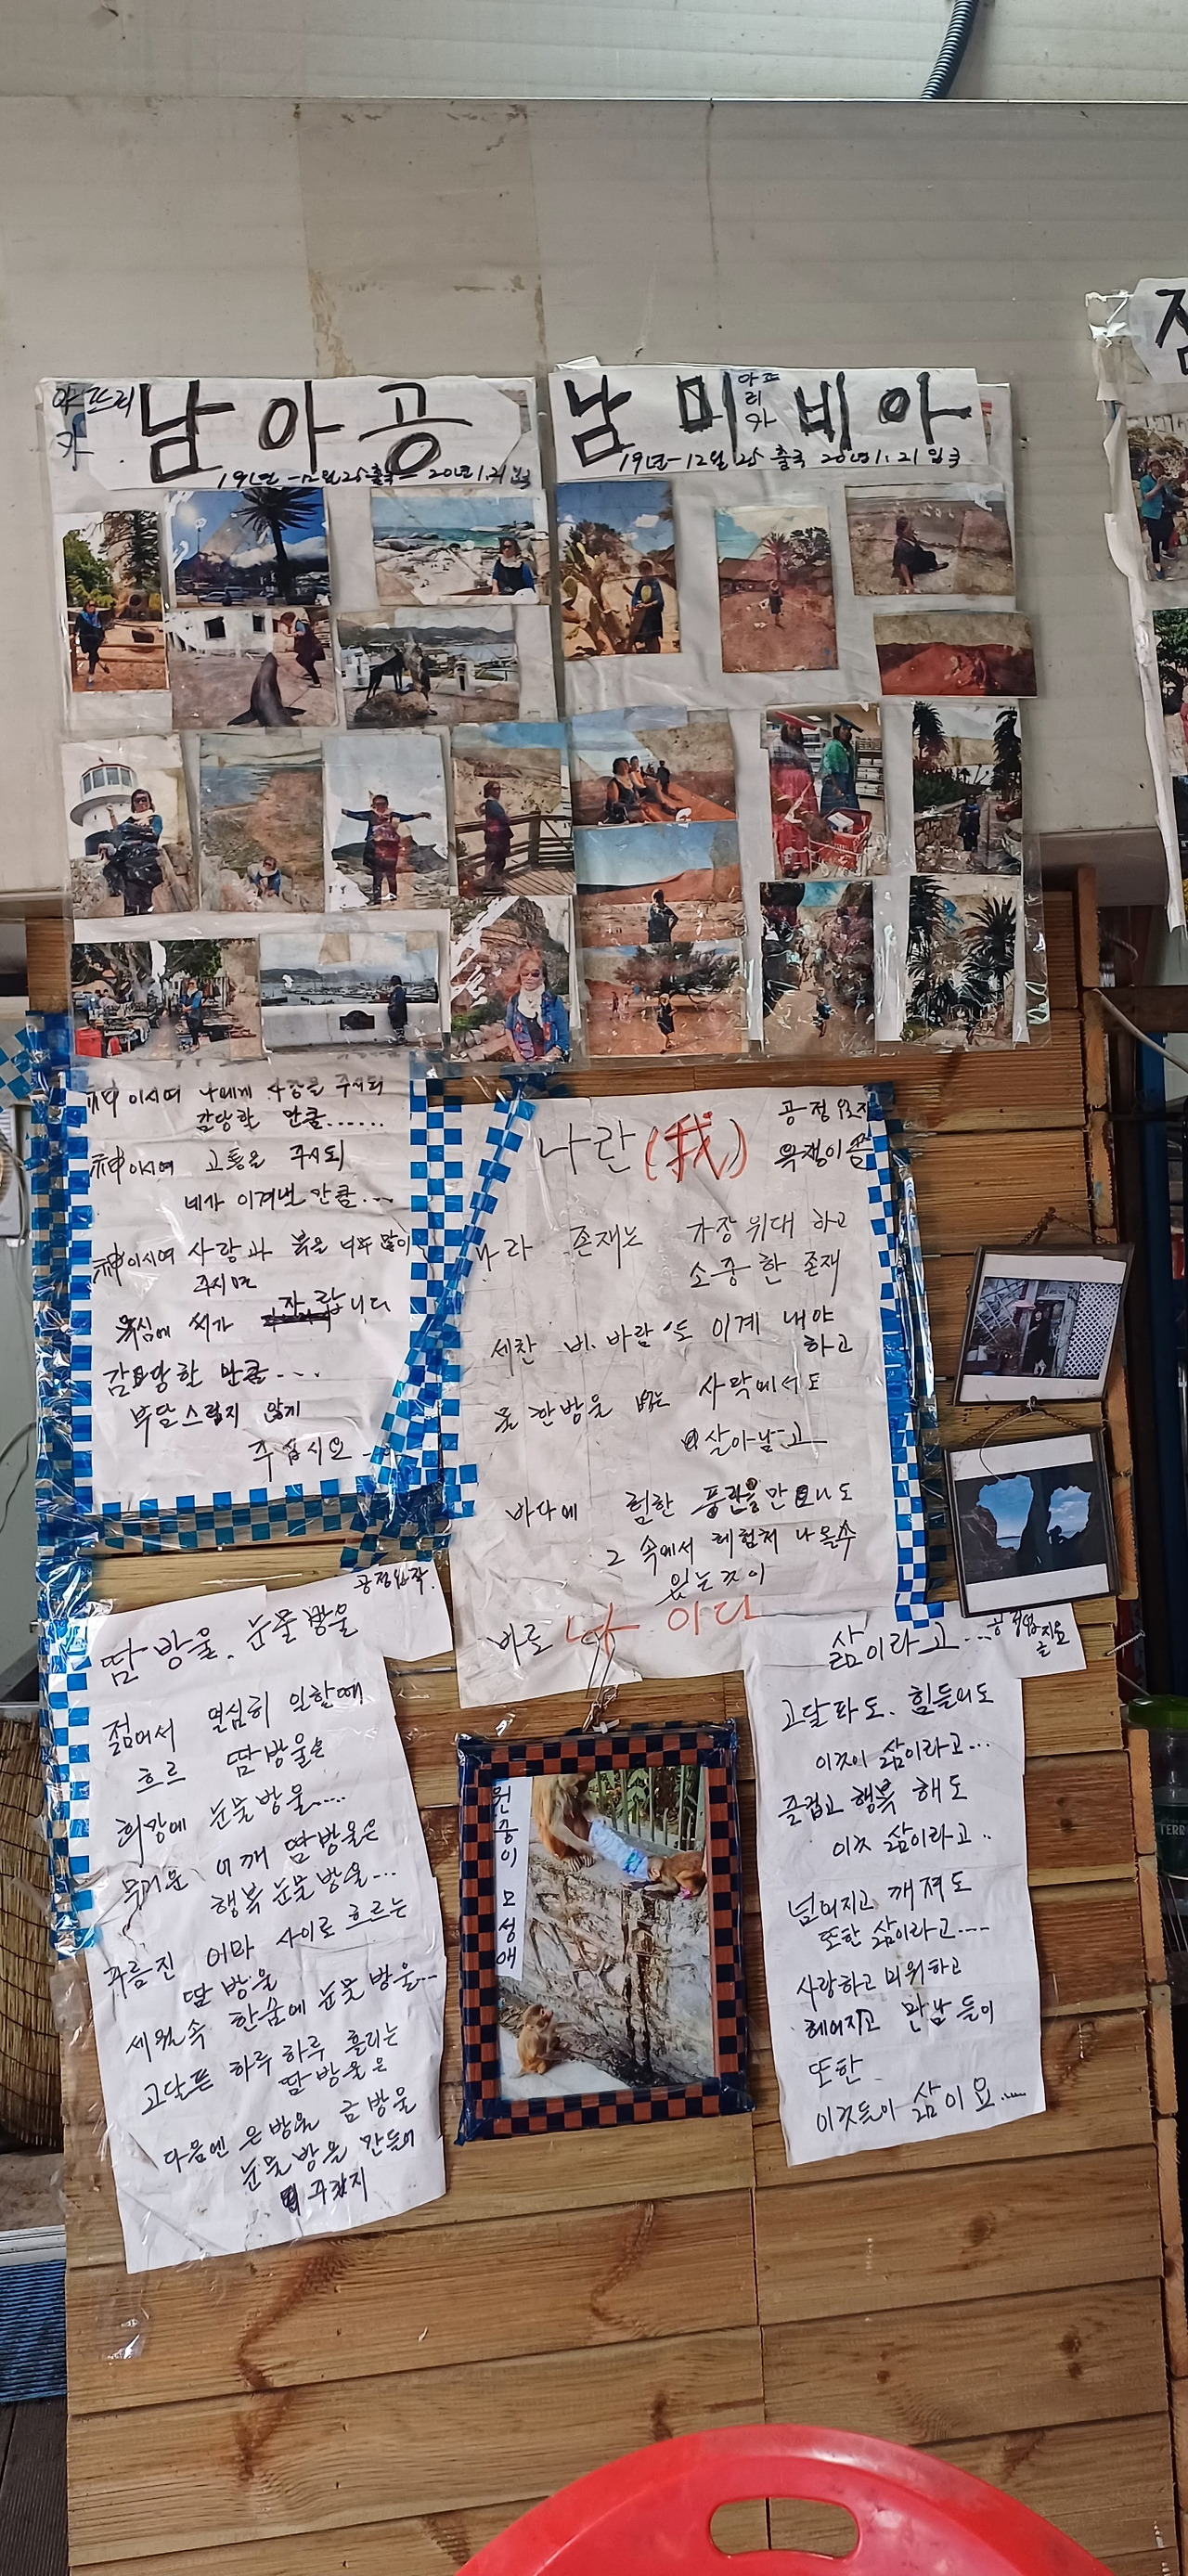 아프리
카
남아공
19년-12월25출국-20년1.21입국
아프
리
카
남미비아
19년-12월25출국 20년1.21입국
神이시여 나에게 사랑을 주시되
감당할 만큼......
神이시여 고통을 주시되
네가 이겨낼 만큼...
神이시여 사랑과 복을 너무 많이
주시면
욕심에 씨가 자랍니다
감당할 만큼...
부담스럽지 않게
주십시오..
나란(我)
공정
욕쟁이
나라 존재는 가장 위대 하고
소중 한 존재
세찬 비.바람도 이계 내야
하고
물 한방울 없는 사막에서도
살아남고
바다에 험한 풍랑을 만나도
그 속에서 헤험처 나올수
있는 것이
바로 나 이다
땀방울. 눈물방울
젊어서 열심히 일할때
흐르 땀방울은
희망에 눈물방울....
무거운 어깨 땀방울은
행복 눈물방울...
주름진 이마 사이로 흐르는
땀방울
세월속 한숨에 눈물방울...
고달픈 하루 하루 흘리는
땀방울은
다음엔 은방울 금방울
눈물방울 만들어
주겠지
원숭이 모성애
삶이라고...
고달파도. 힘들어도
이것이 삶이라고...
즐겁고 행복 해도
이것 삶이라고..
넘어지고 깨져도
또한 삶이라고....
사랑하고 미워하고
헤어지고 만남들이
또한
이것들이 삶이요.....
TERR